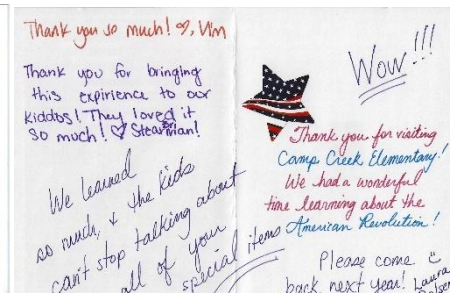 Thank you so much! ♡, Kim
Thank you for bringing
this expirience to our
kiddos! They loved it
so much! ♡
We learned
so much, & the kids
can't stop talking about
all of your
special items
Wow!!!
Thank you for visiting
Camp Creek Elementary!
We had a wonderful
time learning about the
American Revolution!
Please come
back next year! Laura